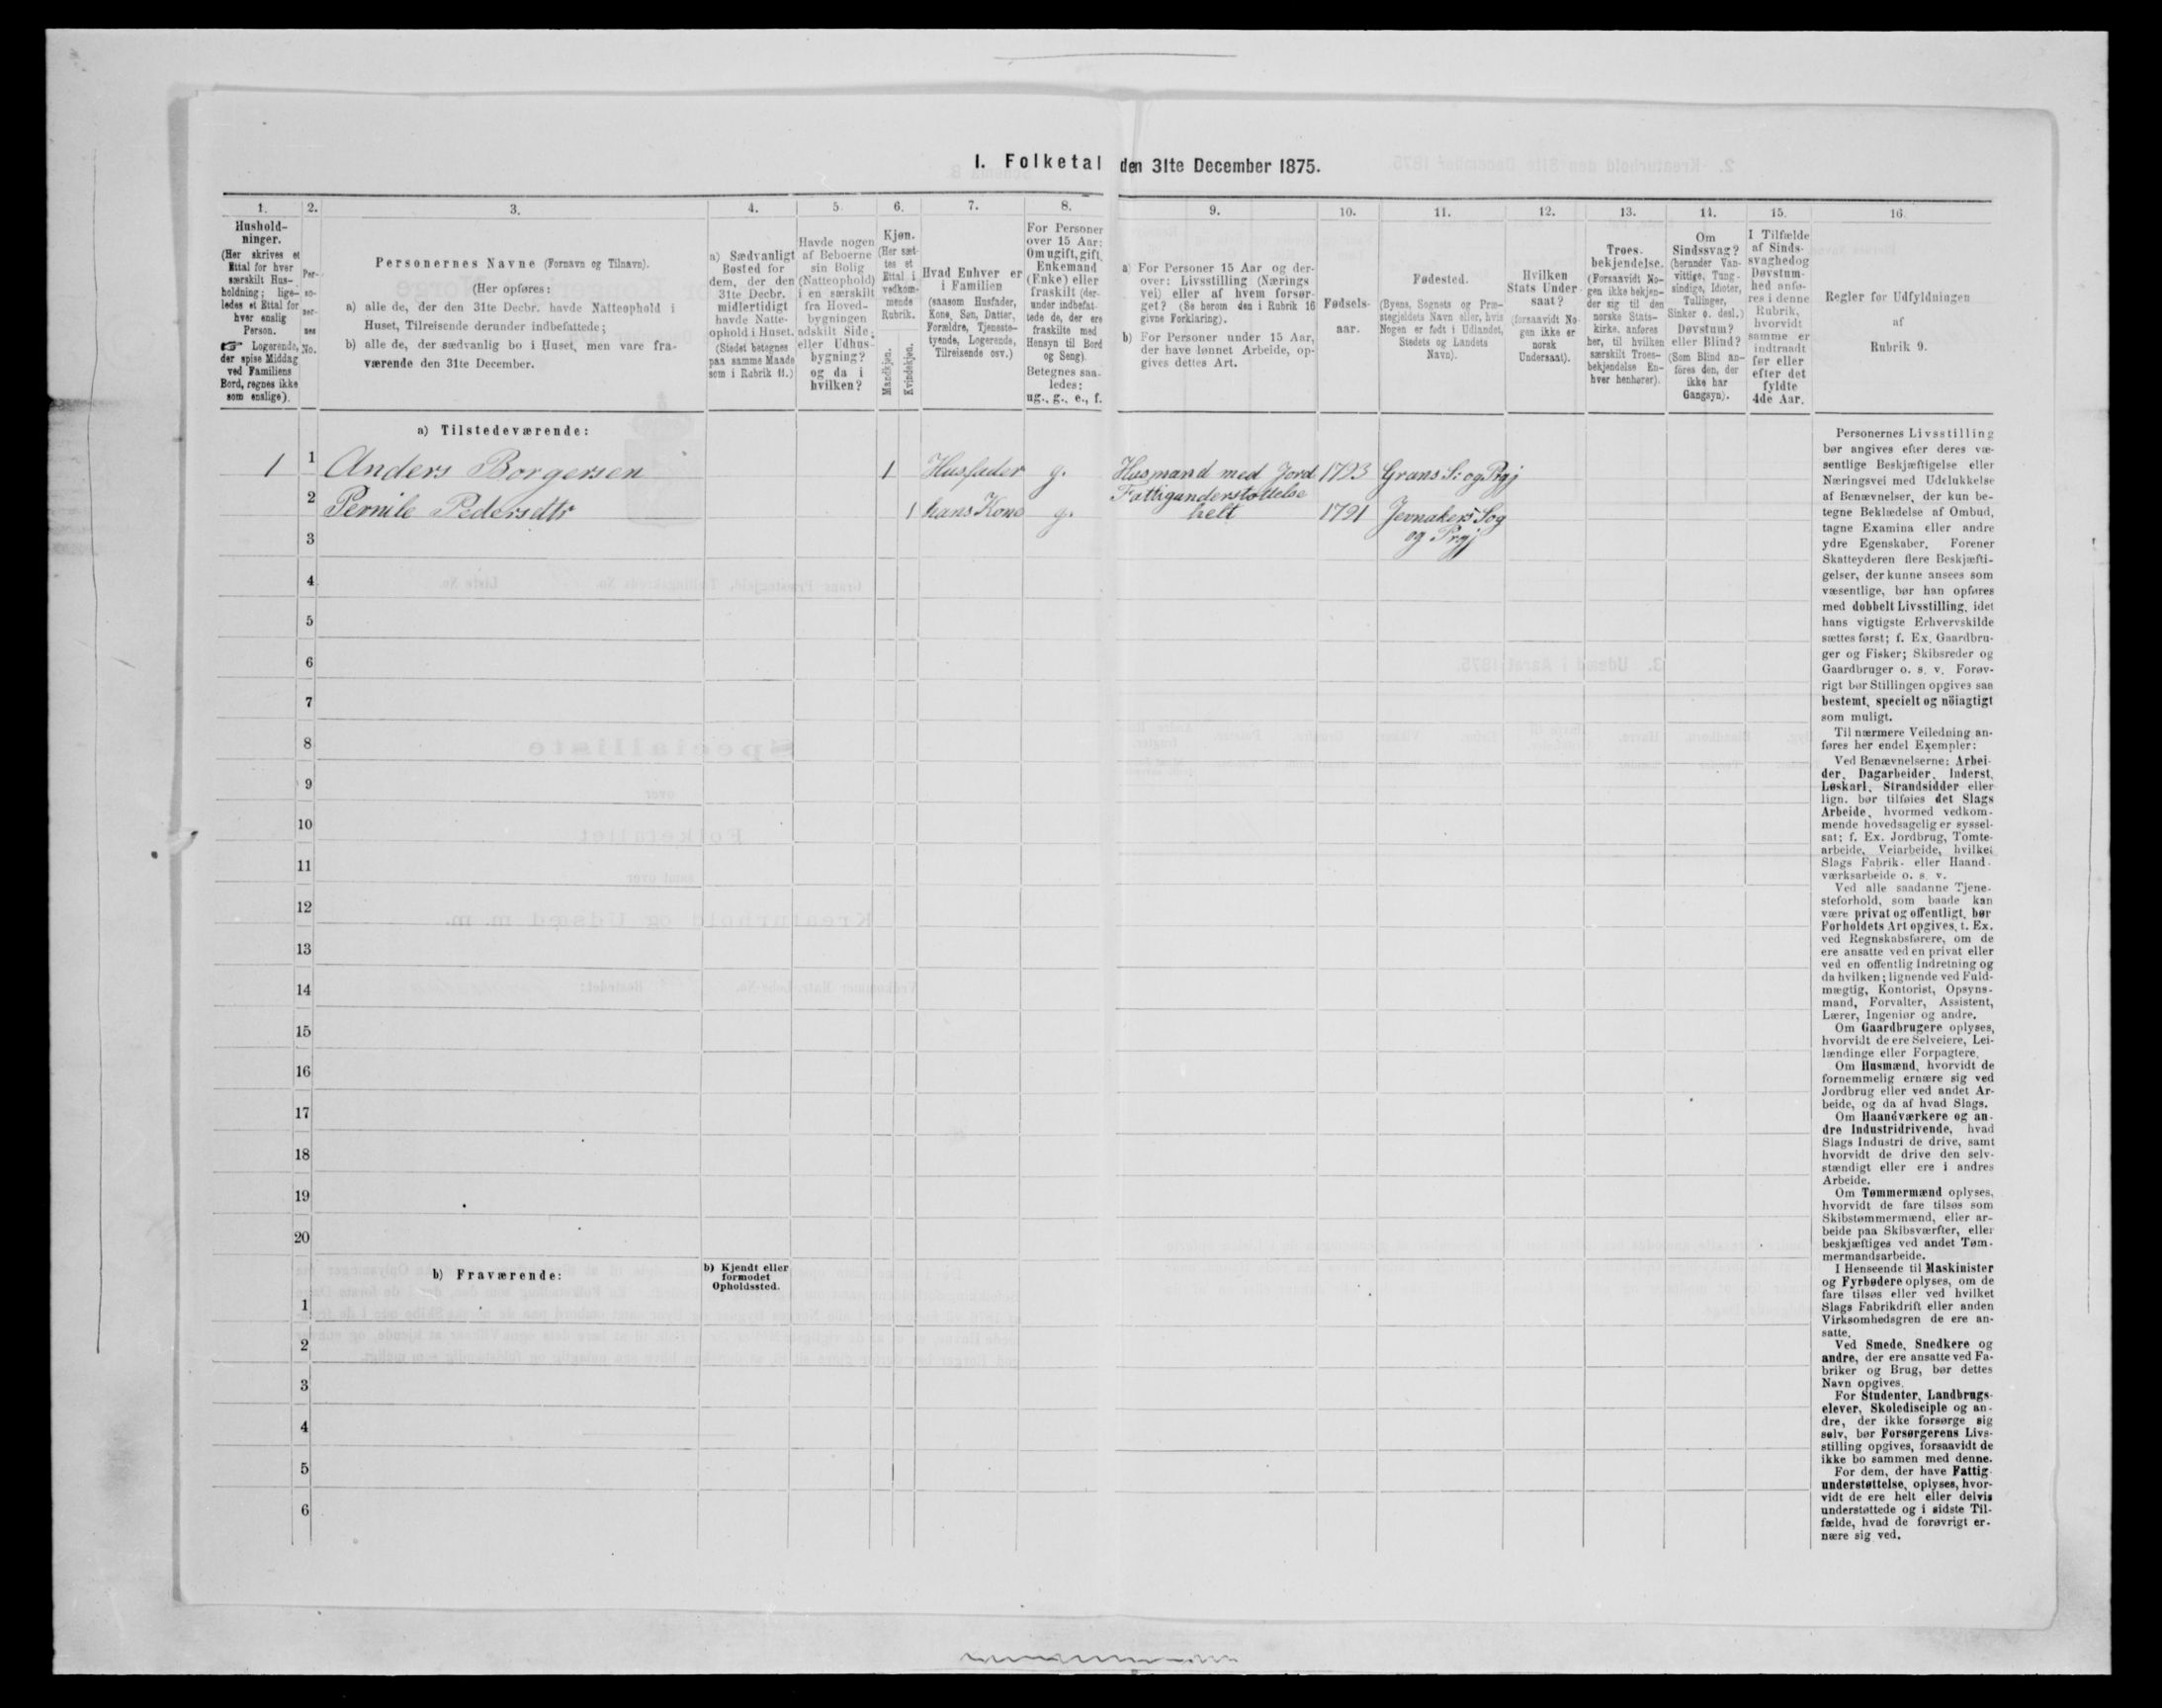 I. Folketal den 31te December 1875.
1.
Hushold-
ninger.
(Her skrives et
Ettal for hver
særskilt Hus-
holdning; lige-
ledes et Ettal for
hver enslig
Person.
☞ Logerende,
der spise Middag
ved Familiens
Bord, regnes ikke
som enslige).
2.
Per-
so-
ner-
nes
No.
3.
Personernes Navne (Fornavn og Tilnavn).
(Her opføres:
a) alle de, der den 31te Decbr. havde Natteophold i
Huset, Tilreisende derunder indbefattede;
b) alle de, der sædvanlig bo i Huset, men vare fra-
værende den 31te December.
4.
a) Sædvanligt
Bosted for
dem, der den
31te Decbr.
midlertidigt
havde Natte-
ophold i Huset.
(Stedet betegnes
paa samme Maade
som i Rubrik 11.)
5.
Havde nogen
af Beboerne
sin Bolig
(Natteophold)
i en særskilt
fra Hoved-
bygningen
adskilt Side-
eller Udhus-
bygning?
og da i
hvilken?
6.
Kjøn.
(Her sæt-
tes et
Ettal i
vedkom-
mende
Rubrik.
Mandkjøn.
Kvindekjøn.
7.
Hvad Enhver er
i Familien
(saasom Husfader,
Kone, Søn, Datter,
Forældre, Tjeneste-
tyende, Logerende,
Tilreisende osv.)
8.
For Personer
over 15 Aar:
Om ugift, gift,
Enkemand
(Enke) eller
fraskilt (der-
under indbefat-
tede de, der ere
fraskilte med
Hensyn til Bord
og Seng).
Betegnes saa-
ledes:
ug., g., e., f.
9.
a) For Personer 15 Aar og der-
over: Livsstilling (Nærings
vei) eller af hvem forsør-
get? (Se herom den i Rubrik 16
givne Forklaring).
b) For Personer under 15 Aar,
der have lønnet Arbeide, op-
gives dettes Art.
10.
Fødsels-
aar.
11.
Fødested.
(Byens, Sognets og Præ-
stegjeldets Navn eller, hvis
Nogen er født i Udlandet,
Stedets og Landets
Navn).
12.
Hvilken
Stats Under-
saat?
(forsaavidt No-
gen ikke er
norsk
Undersaat).
13.
Troes-
bekjendelse.
(Forsaavidt No-
gen ikke bekjen-
der sig til den
norske Stats-
kirke, anføres
her, til hvilken
særskilt Troes-
bekjendelse En-
hver henhører).
14.
Om
Sindssvag?
(herunder Van-
vittige, Tung-
sindige, Idioter,
Tullinger,
Sinker o. desl.)
Døvstum?
eller Blind?
(Som Blind an-
føres den, der
ikke har
Gangsyn).
15.
I Tilfælde
af Sinds-
svaghed og
Døvstum-
hed anfø-
res i denne
Rubrik,
hvorvidt
samme er
indtraadt
før eller
efter det
fyldte
4de Aar.
16.
Regler for Udfyldningen
af
Rubrik 9.
a) Tilstedeværende:
1 1 Anders Borgersen 1 Husfader g. Husmand med Jord 1793 Grans S: og Prgj
Fattigunderstøttelse
2 Pernile Pedersdtr 1 hans Kone g. helt 1791 Jevnakers Sog
og Prgj
3
4
5
6
7
8
9
10
11
12
13
14
15
16
17
18
19
20
b) Fraværende:
b) Kjendt eller
formodet
Opholdssted.
1
2
3
4
5
6
Personernes Livsstilling
bør angives efter deres væ-
sentlige Beskjæftigelse eller
Næringsvei med Udelukkelse
af Benævnelser, der kun be-
tegne Beklædelse af Ombud,
tagne Examina eller andre
ydre Egenskaber. Forener
Skatteyderen flere Beskjæfti-
gelser, der kunne ansees som
væsentlige, bør han opføres
med dobbelt Livsstilling, idet
hans vigtigste Erhvervskilde
sættes først; f. Ex. Gaardbru-
ger og Fisker; Skibsreder og
Gaardbruger o. s. v. Forøv-
rigt bør Stillingen opgives saa
bestemt, specielt og nöiagtigt
som muligt.
Til nærmere Veiledning an-
føres her endel Exempler:
Ved Benævnelserne: Arbei-
der, Dagarbeider, Inderst,
Løskarl, Strandsidder eller
lign. bør tilføies det Slags
Arbeide, hvormed vedkom-
mende hovedsagelig er syssel-
sat; f. Ex. Jordbrug, Tomte-
arbeide, Veiarbeide, hvilket
Slags Fabrik- eller Haand-
værksarbeide o. s. v.
Ved alle saadanne Tjene-
steforhold, som baade kan
være privat og offentligt, bør
Forholdets Art opgives, t. Ex.
ved Regnskabsførere, om de
ere ansatte ved en privat eller
ved en offentlig Indretning og
da hvilken; lignende ved Fuld-
mægtig, Kontorist, Opsyns-
mand, Forvalter, Assistent,
Lærer, Ingeniør og andre.
Om Gaardbrugere oplyses,
hvorvidt de ere Selveiere, Lei-
lændinge eller Forpagtere.
Om Husmænd, hvorvidt de
fornemmelig ernære sig ved
Jordbrug eller ved andet Ar-
beide, og da af hvad Slags.
Om Haandværkere og an-
dre Industridrivende, hvad
Slags Industri de drive, samt
hvorvidt de drive den selv-
stændigt eller ere i andres
Arbeide.
Om Tømmermænd oplyses,
hvorvidt de fare tilsøs som
Skibstømmermænd, eller ar-
beide paa Skibsværfter, eller
beskjæftiges ved andet Tøm-
mermandsarbeide.
I Henseende til Maskinister
og Fyrbødere oplyses, om de
fare tilsøs eller ved hvilket
Slags Fabrikdrift eller anden
Virksomhedsgren de ere an-
satte.
Ved Smede, Snedkere og
andre, der ere ansatte ved Fa-
briker og Brug, bør dettes
Navn opgives.
For Studenter, Landbrugs-
elever, Skoledisciple og an-
dre, der ikke forsørge sig
selv, bør Forsørgerens Livs-
stilling opgives, forsaavidt de
ikke bo sammen med denne.
For dem, der have Fattig-
understøttelse, oplyses, hvor-
vidt de ere helt eller delvis
understøttede og i sidste Til-
fælde, hvad de forøvrigt er-
nære sig ved.